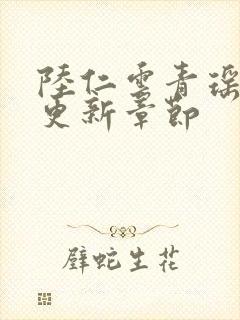 陸仁雲青瑶
更新章節
壁蛇生花